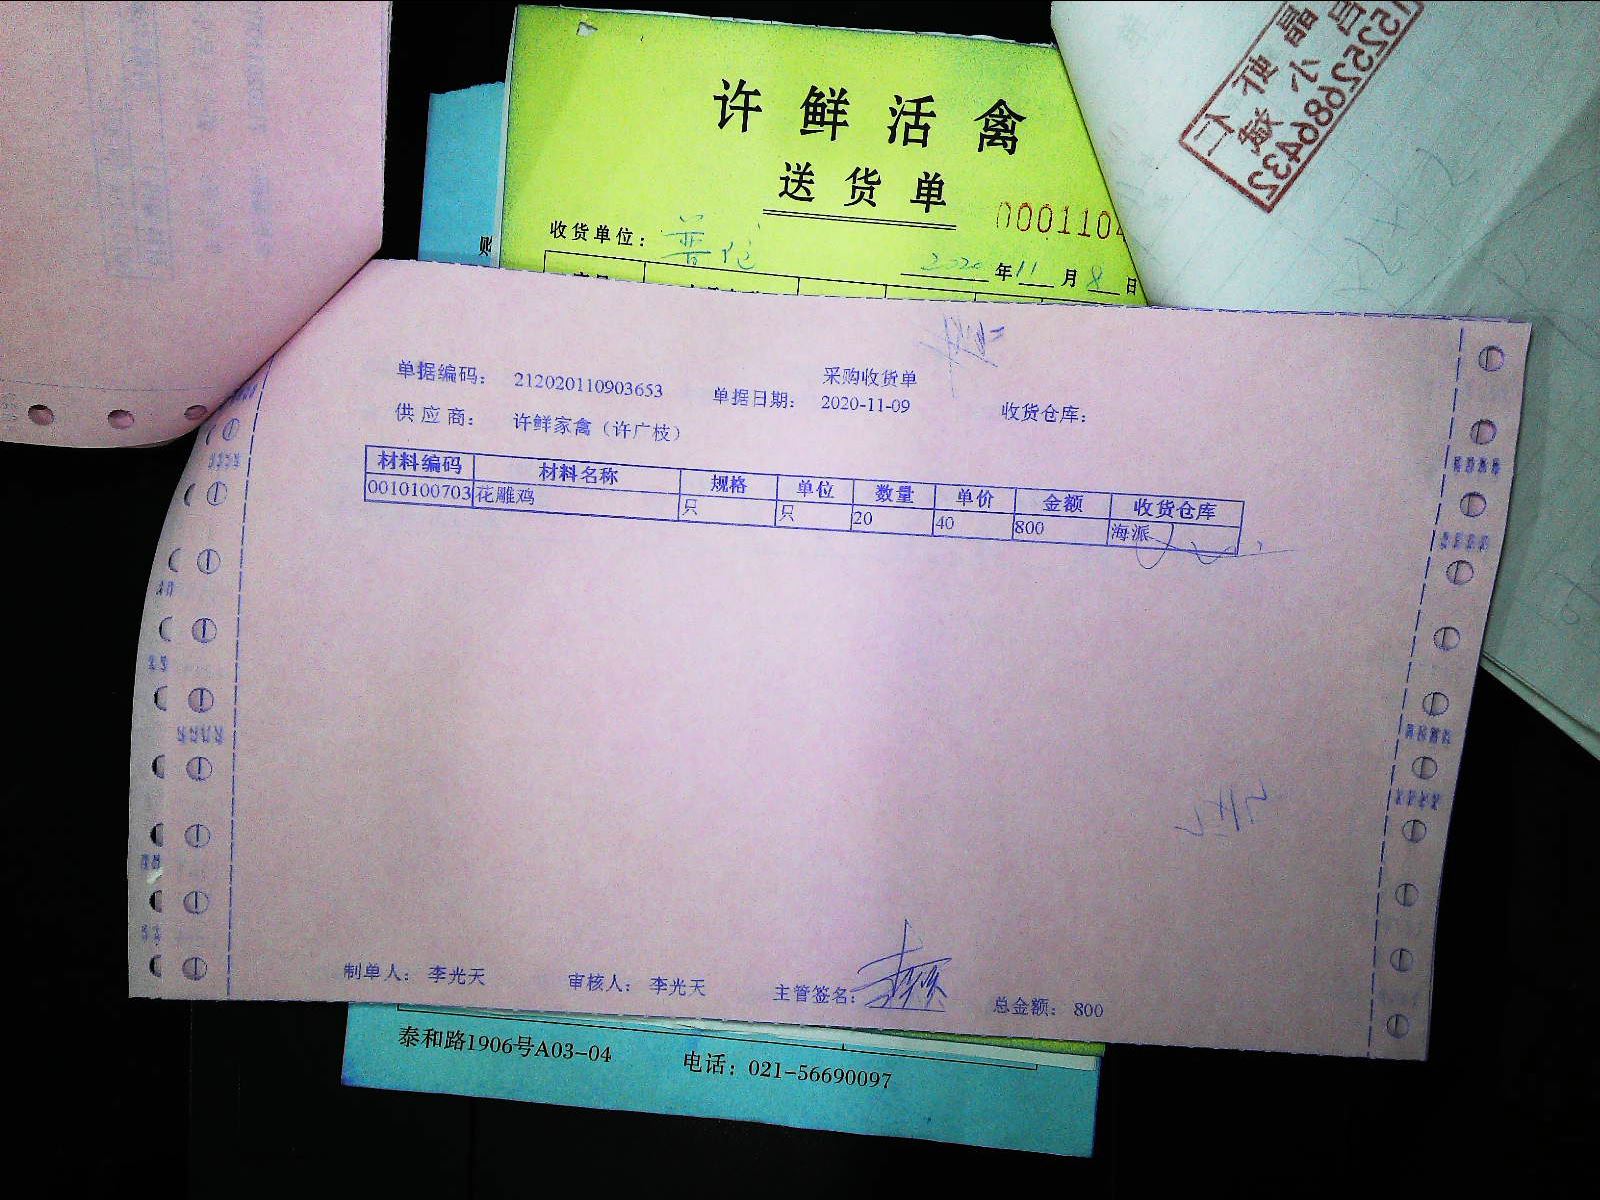 许鲜活禽
送货单
收货单位：普陀
2020年11月8日
采购收货单
单据编码： 212020110903653 单据日期： 2020-11-09 收货仓库：
供应商： 许鲜家禽（许广枝）
材料编码 材料名称 规格 单位 数量 单价 金额 收货仓库
0010100703 花雕鸡 只 只 20 40 800 海派
制单人： 李光天 审核人： 李光天 主管签名： 总金额： 800
泰和路1906号A03-04 电话：021-56690097